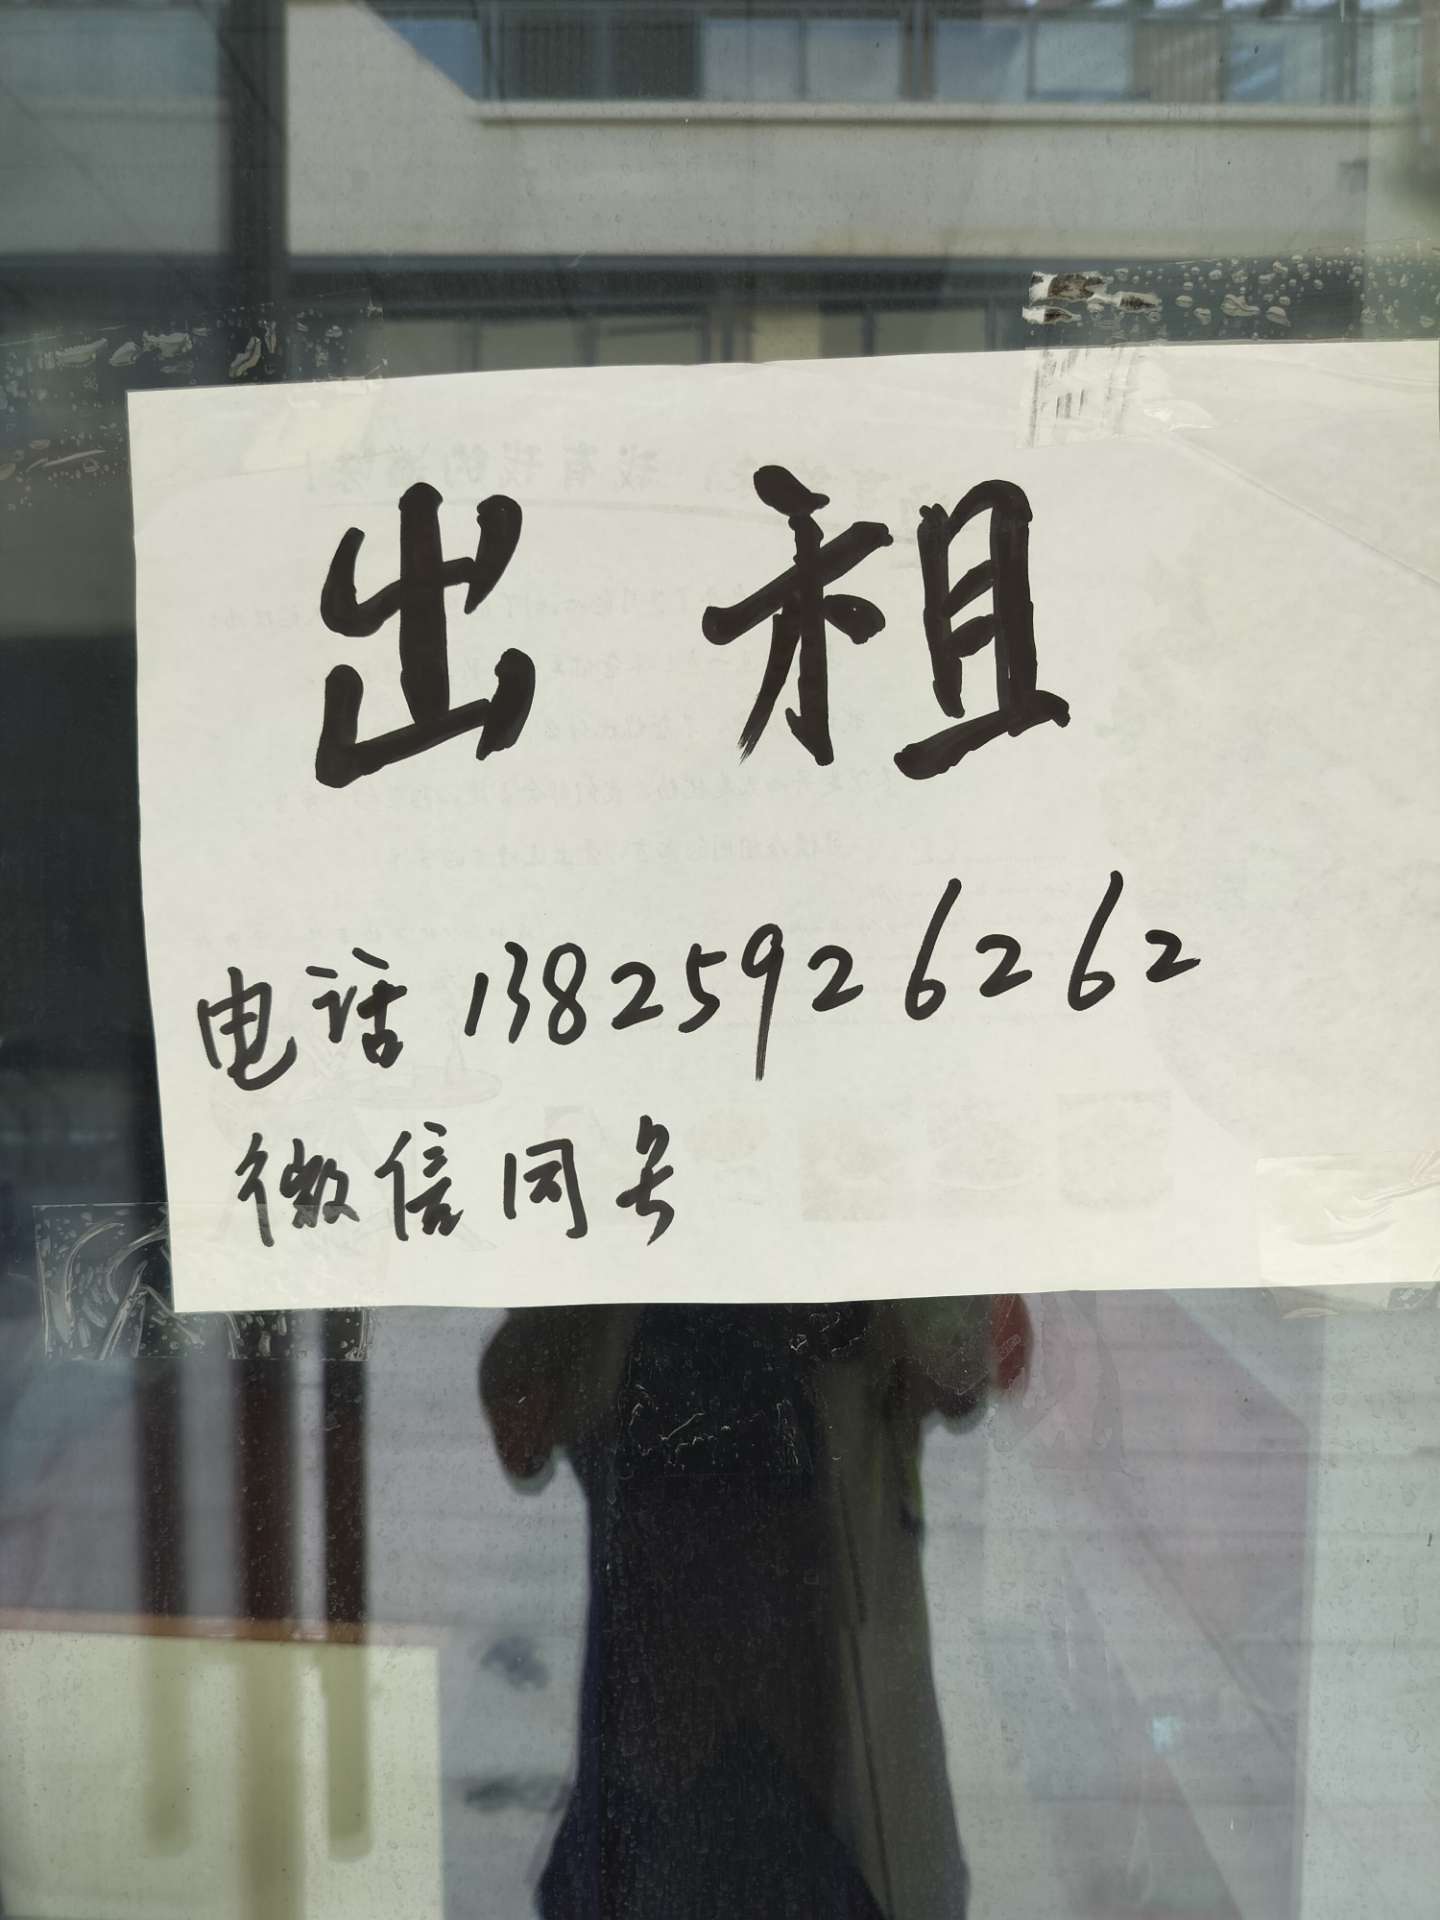 出租
电话 13825926262
微信同号